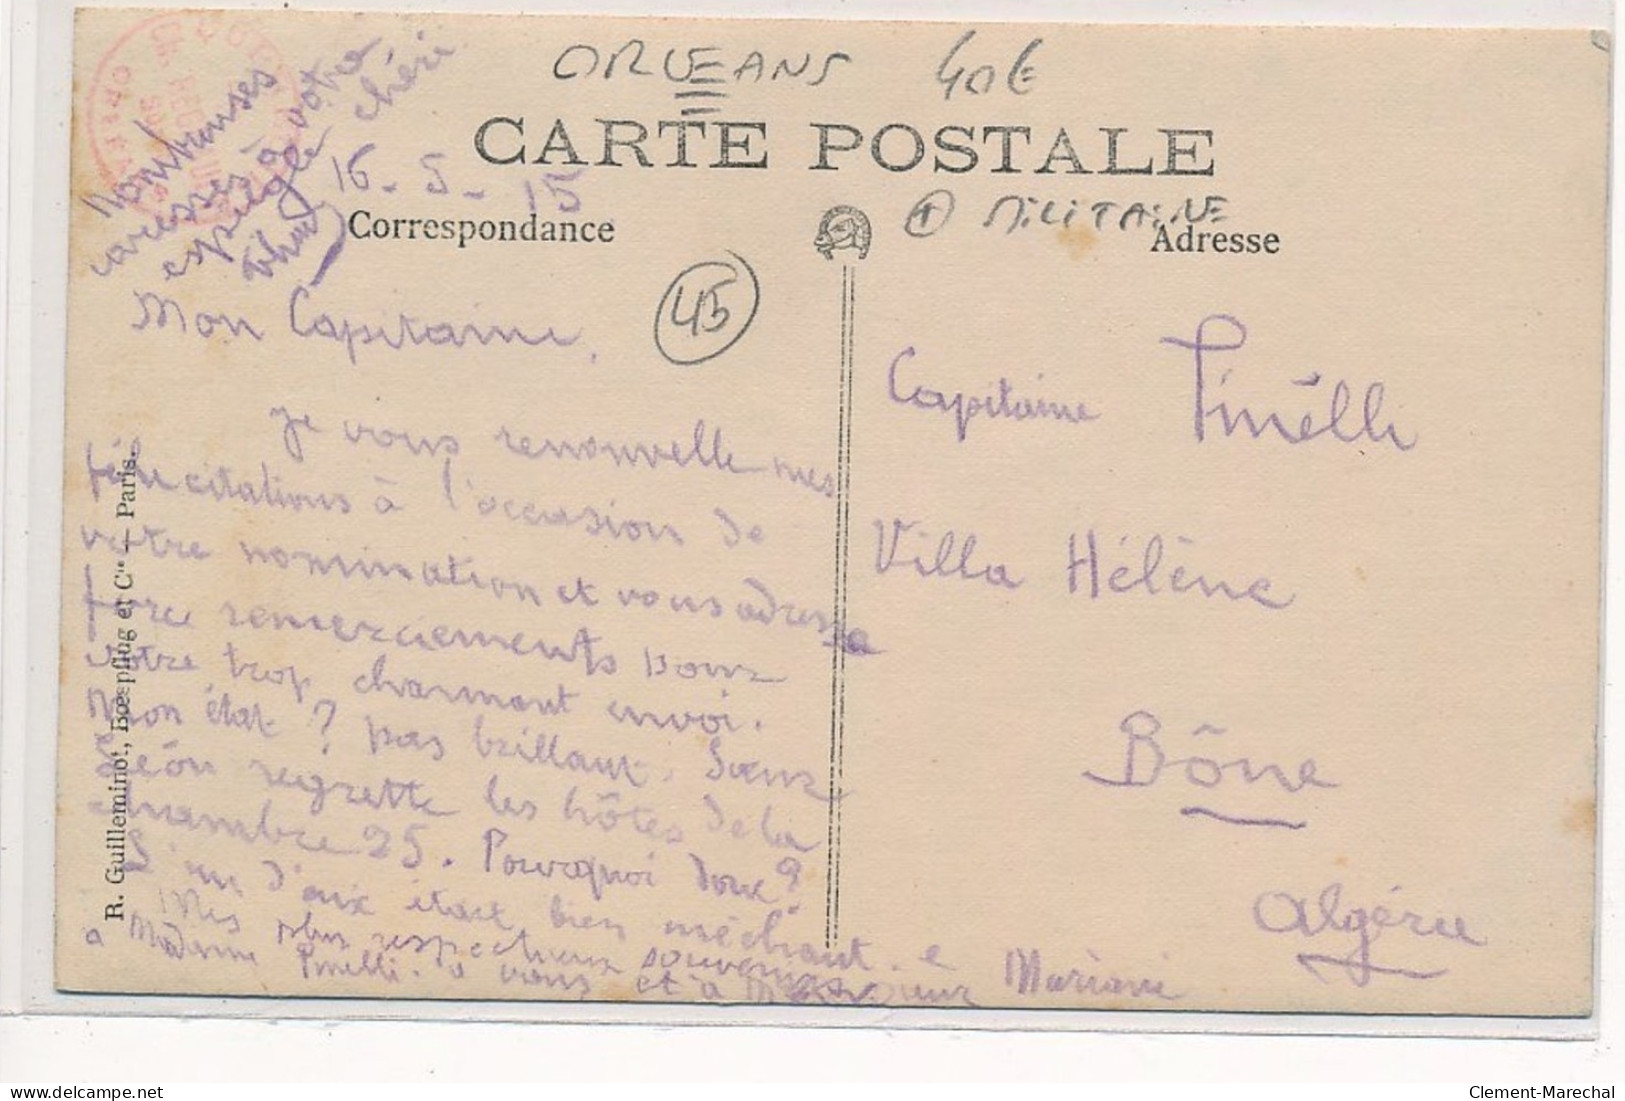 ORLEANS 40€
CARTE POSTALE
+ MILITAIRE
Correspondance
Adresse
45
16-5-15
caresses à votre
espiègle chéri
Mon Capitaine.
Je vous renouvelle mes
félicitations à l'occasion de
votre nomination et vous adresse
force remerciements pour
votre trop charmant envoi.
Mon état ? pas brillant. Sœur
Léon regrette les hôtes de la
chambre 25. Pourquoi donc ?
L'un d'eux était bien méchant.
Mes plus respectueux souvenirs
à Madame Pinelli. à vous et à
Mariani
Capitaine Pinélli
Villa Hélène
Bône
Algérie
R. Guilleminot, Bœspflug et Cie — Paris.
delcampe.net
Clement-Marechal